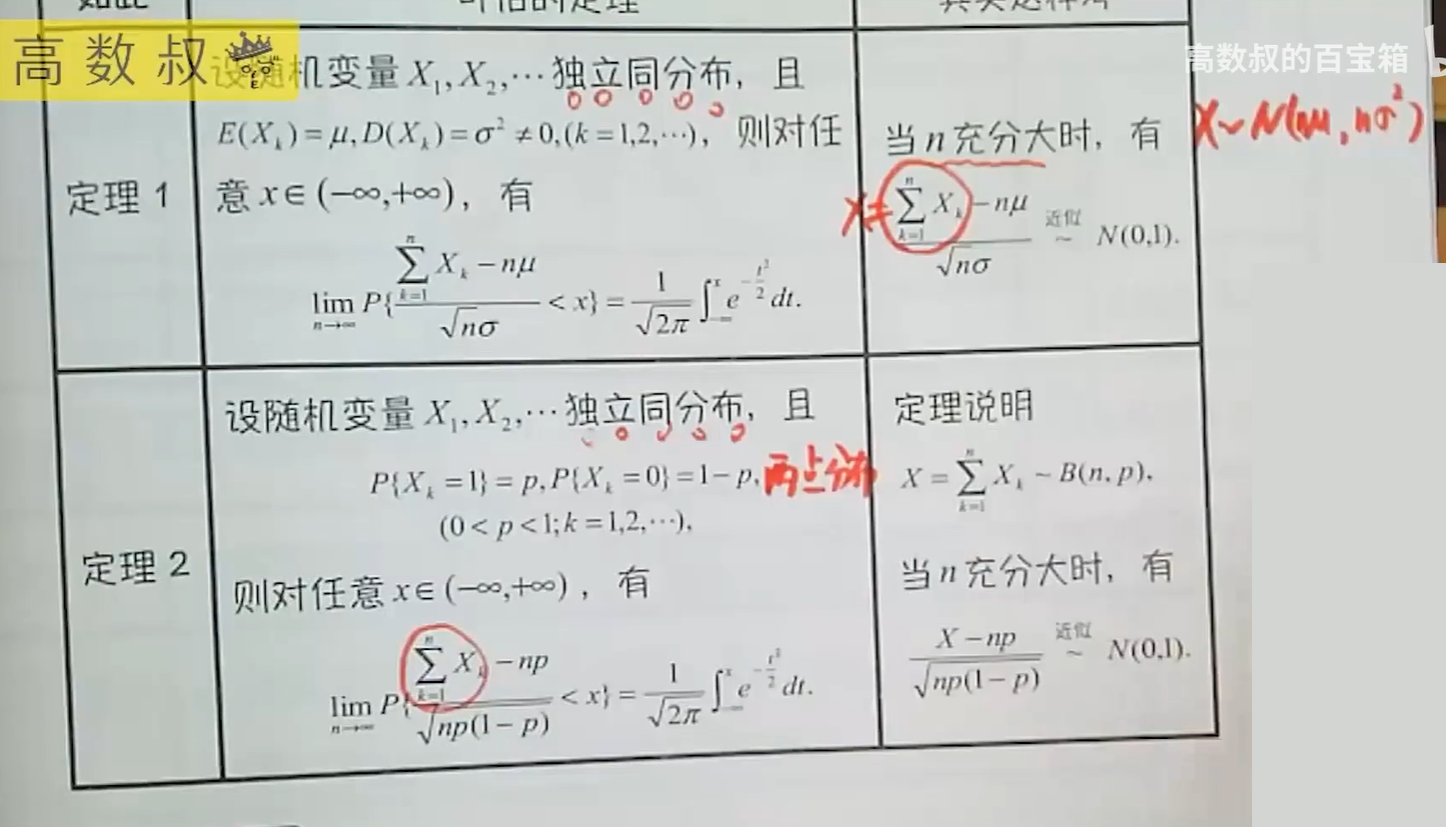 高数叔
高数叔的百宝箱
定理 1
设随机变量 X₁, X₂, ⋯ 独立同分布，且
E(Xₖ) = μ, D(Xₖ) = σ² ≠ 0, (k = 1,2,⋯), 则对任
意 x ∈ (−∞,+∞)，有
lim_{n→∞} P{ (∑_{k=1}^{n} Xₖ − nμ) / (√n σ) < x} = 1/√(2π) ∫_{−∞}^{x} e^{−t²/2} dt.
当 n 充分大时，有
X ~ N(nμ, nσ²)
X =
(∑_{k=1}^{n} Xₖ − nμ) / (√n σ) 近似 ~ N(0,1).
定理 2
设随机变量 X₁, X₂, ⋯ 独立同分布，且
P{Xₖ = 1} = p, P{Xₖ = 0} = 1 − p, 两点分布
(0 < p < 1; k = 1,2,⋯),
则对任意 x ∈ (−∞,+∞)，有
lim_{n→∞} P{ (∑_{k=1}^{n} Xₖ − np) / √(np(1 − p)) < x} = 1/√(2π) ∫_{−∞}^{x} e^{−t²/2} dt.
定理说明
X = ∑_{k=1}^{n} Xₖ ~ B(n, p),
当 n 充分大时，有
(X − np) / √(np(1 − p)) 近似 ~ N(0,1).